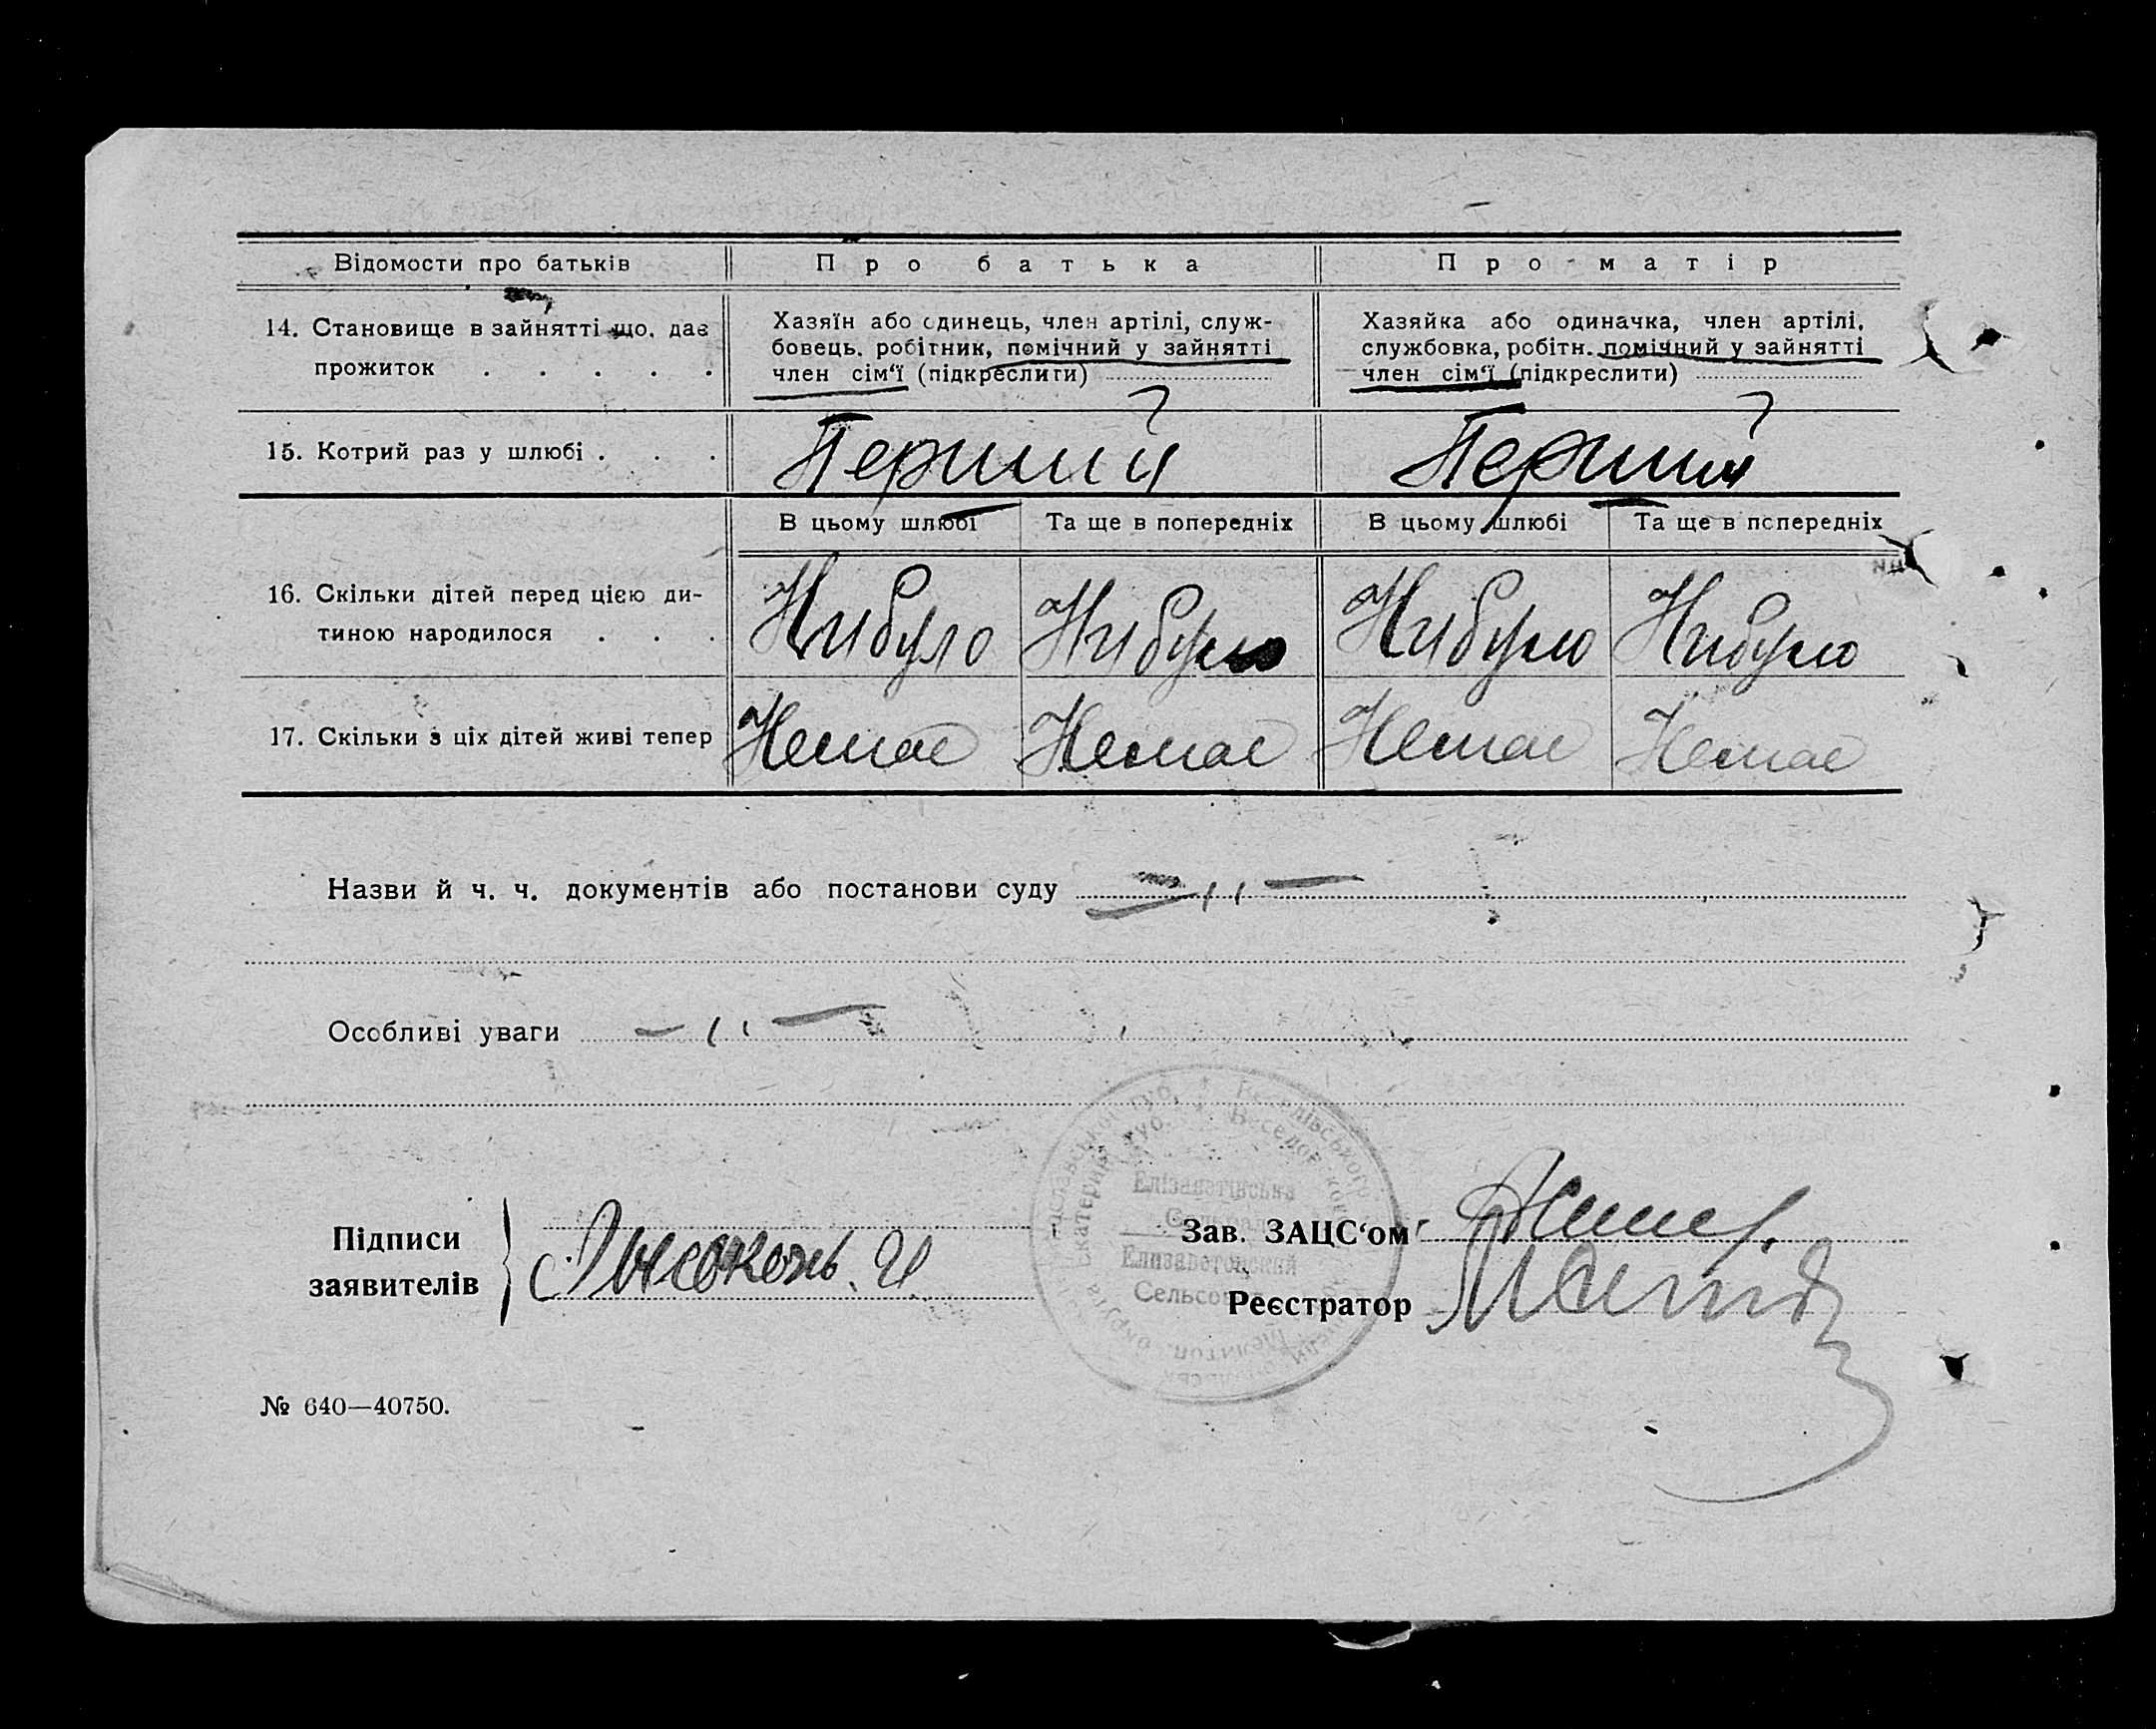 Відомости про батьків Про батька Про матір
14. Становище в зайнятті що, дає
прожиток . . . . .
Хазяїн або одинець, член артілі, служ-
бовець, робітник, помічний у зайнятті
член сім'ї (підкреслити)
Хазяйка або одиначка, член артілі,
службовка, робітн. помічний у зайнятті
член сім'ї (підкреслити)
15. Котрий раз у шлюбі . . . Перший Перший
В цьому шлюбі Та ще в попередніх В цьому шлюбі Та ще в попередніх
16. Скільки дітей перед цією ди-
тиною народилося . . .
Нибуло Нибуло Нибуло Нибуло
17. Скільки з ціх дітей живі тепер Немає Немає Немає Немає
Назви й ч. ч. документів або постанови суду — ״ —
Особливі уваги — ״ —
Єлізаветівська
Елизаветовский
Сельсовет
Підписи
заявителів
Лысоконь. И
Зав. ЗАЦС'ом
Реєстратор
№ 640—40750.